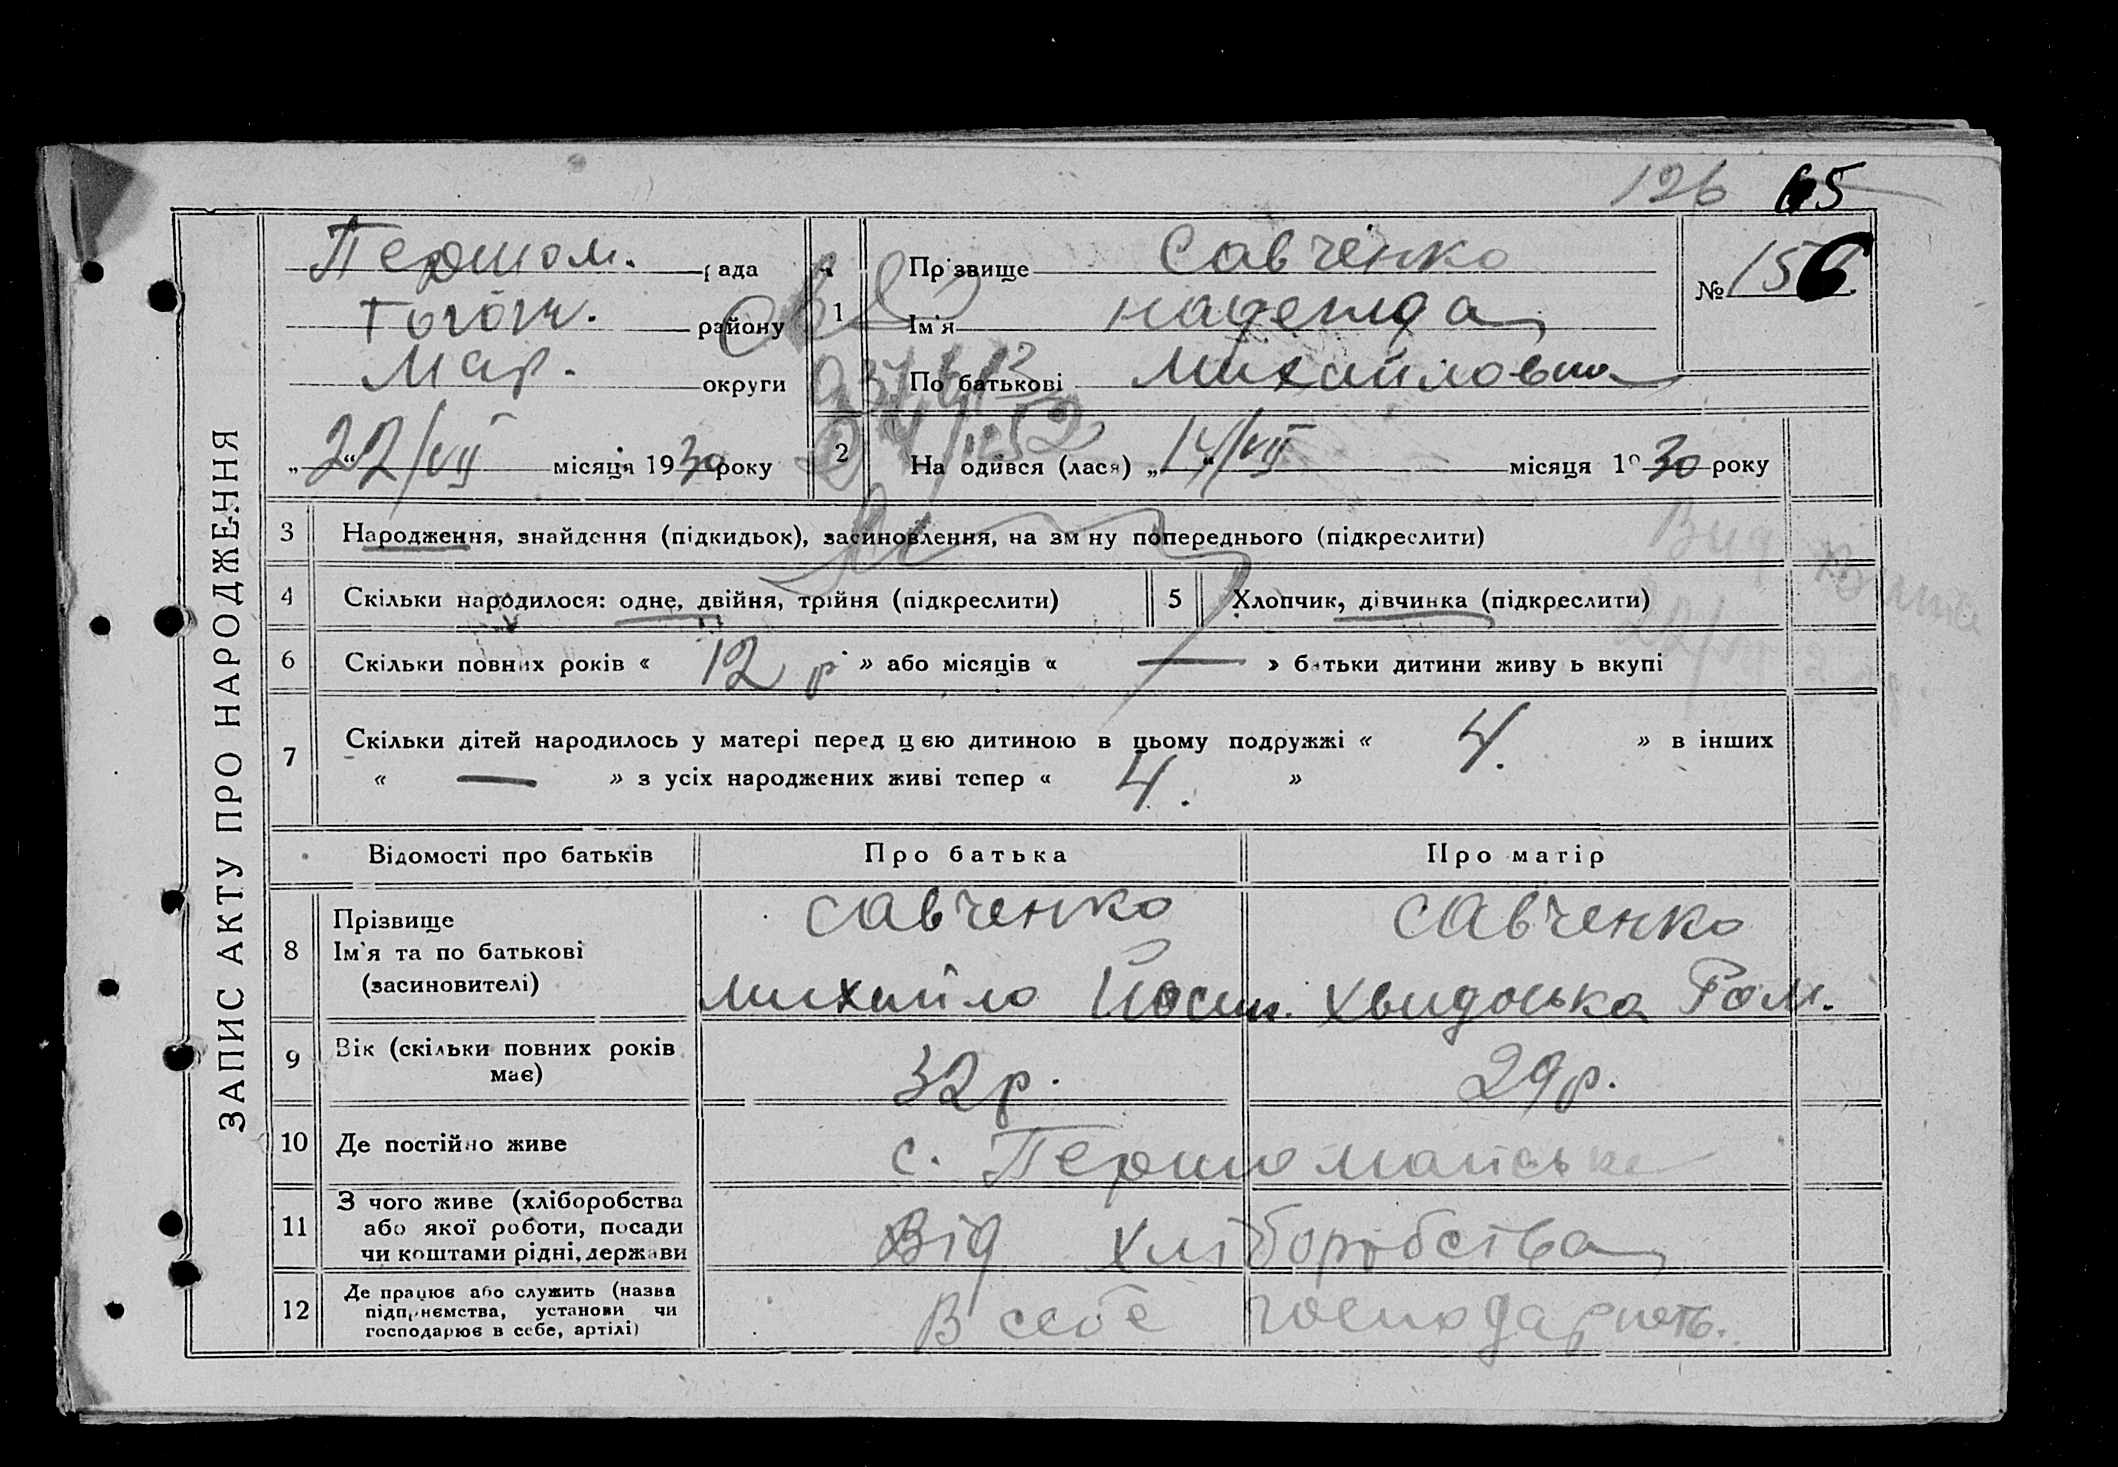 126 65
ЗАПИС АКТУ ПРО НАРОДЖЕННЯ
Першом. рада
району
Мар. округи
„22/VII“ місяця 1930 року
1
Прізвище Савченко
Ім'я Надежда
По батькові Михайловна
№ 156
2
На одився (лася) „14/VII“ місяця 1930 року
3 Народження, знайдення (підкидьок), засиновлення, на зм ну попереднього (підкреслити)
4 Скільки народилося: одне, двійня, трійня (підкреслити) 5 Хлопчик, дівчинка (підкреслити)
6 Скільки повних років « 12 р. » або місяців « — » батьки дитини живу ь вкупі
7 Скільки дітей народилось у матері перед цею дитиною в цьому подружжі « 4. » в інших
« — » з усіх народжених живі тепер « 4. »
Відомості про батьків Про батька Про матір
8 Прізвище
Ім'я та по батькові
(засиновителі)
Савченко Савченко
Михайло Йосип. Хвидоська Ром.
9 Вік (скільки повних років
має) 32 р. 29 р.
10 Де постійно живе с. Першомайське
11 З чого живе (хліборобства
або якої роботи, посади
чи коштами рідні, держави
Від хліборобства
12 Де працює або служить (назва
підприємства, установи чи
господарює в себе, артілі)
В себе господарють.